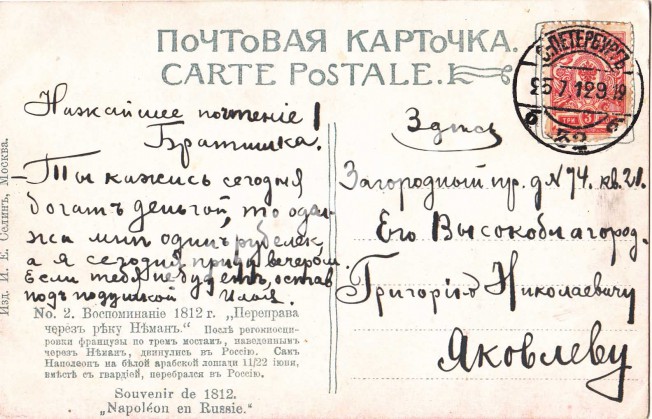 ПОЧТОВАЯ КАРТОЧКА.
CARTE POSTALE.
С.ПЕТЕРБУРГЪ
25 7 12 9
Нижайшее почтеніе!
Братишка.
Ты кажись сегодня
богатъ деньгой, то одол-
жа мнѣ одинъ рубелек,
а я сегодня приду вечеромъ.
Если тебя не будетъ, оставь
подъ подушкой Илья.
Здѣсь
Загородный пр. д N 74. кв. 21.
Его Высокоблагород.
Григорію Николаевичу
Яковлеву
No. 2. Воспоминаніе 1812 г. „Переправа
черезъ рѣку Нѣманъ.“ Послѣ регокносци-
ровки французы по тремъ мостамъ, наведеннымъ
черезъ Нѣманъ, двинулись въ Россію. Самъ
Наполеонъ на бѣлой арабской лошади 11/22 іюни,
вмѣстѣ съ гвардіей, перебрался въ Россію.
Souvenir de 1812.
„Napoléon en Russie.“
Изд. И. Е. Селинъ, Москва.